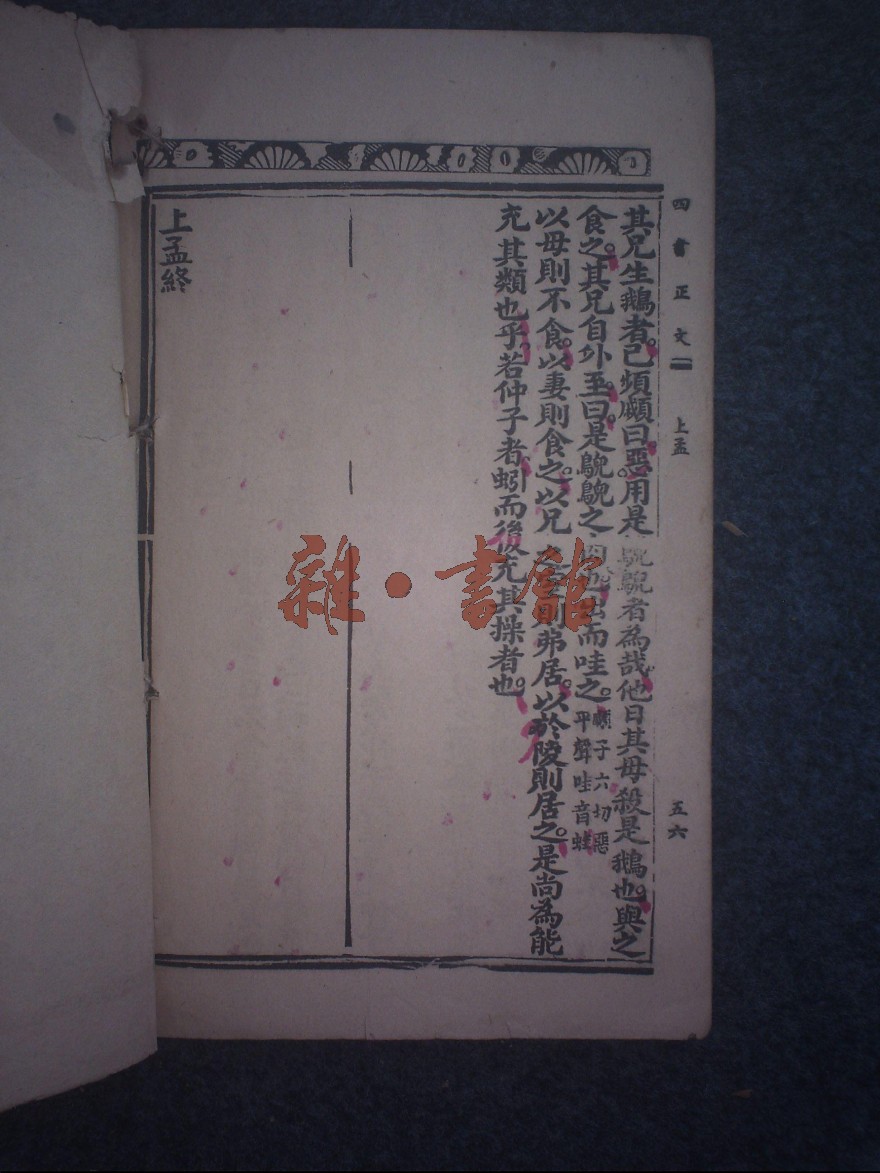 四書正文 上孟 五六
其兄生鵝者。己頻顣曰。惡用是鶃鶃者為哉。他日其母殺是鵝也。與之
食之。其兄自外至。曰。是鶃鶃之肉也。出而哇之。顣子六切惡
平聲哇音蛙
以母則不食。以妻則食之。以兄之室則弗居。以於陵則居之。是尚為能
充其類也乎。若仲子者。蚓而後充其操者也。
上孟終
雜·書館